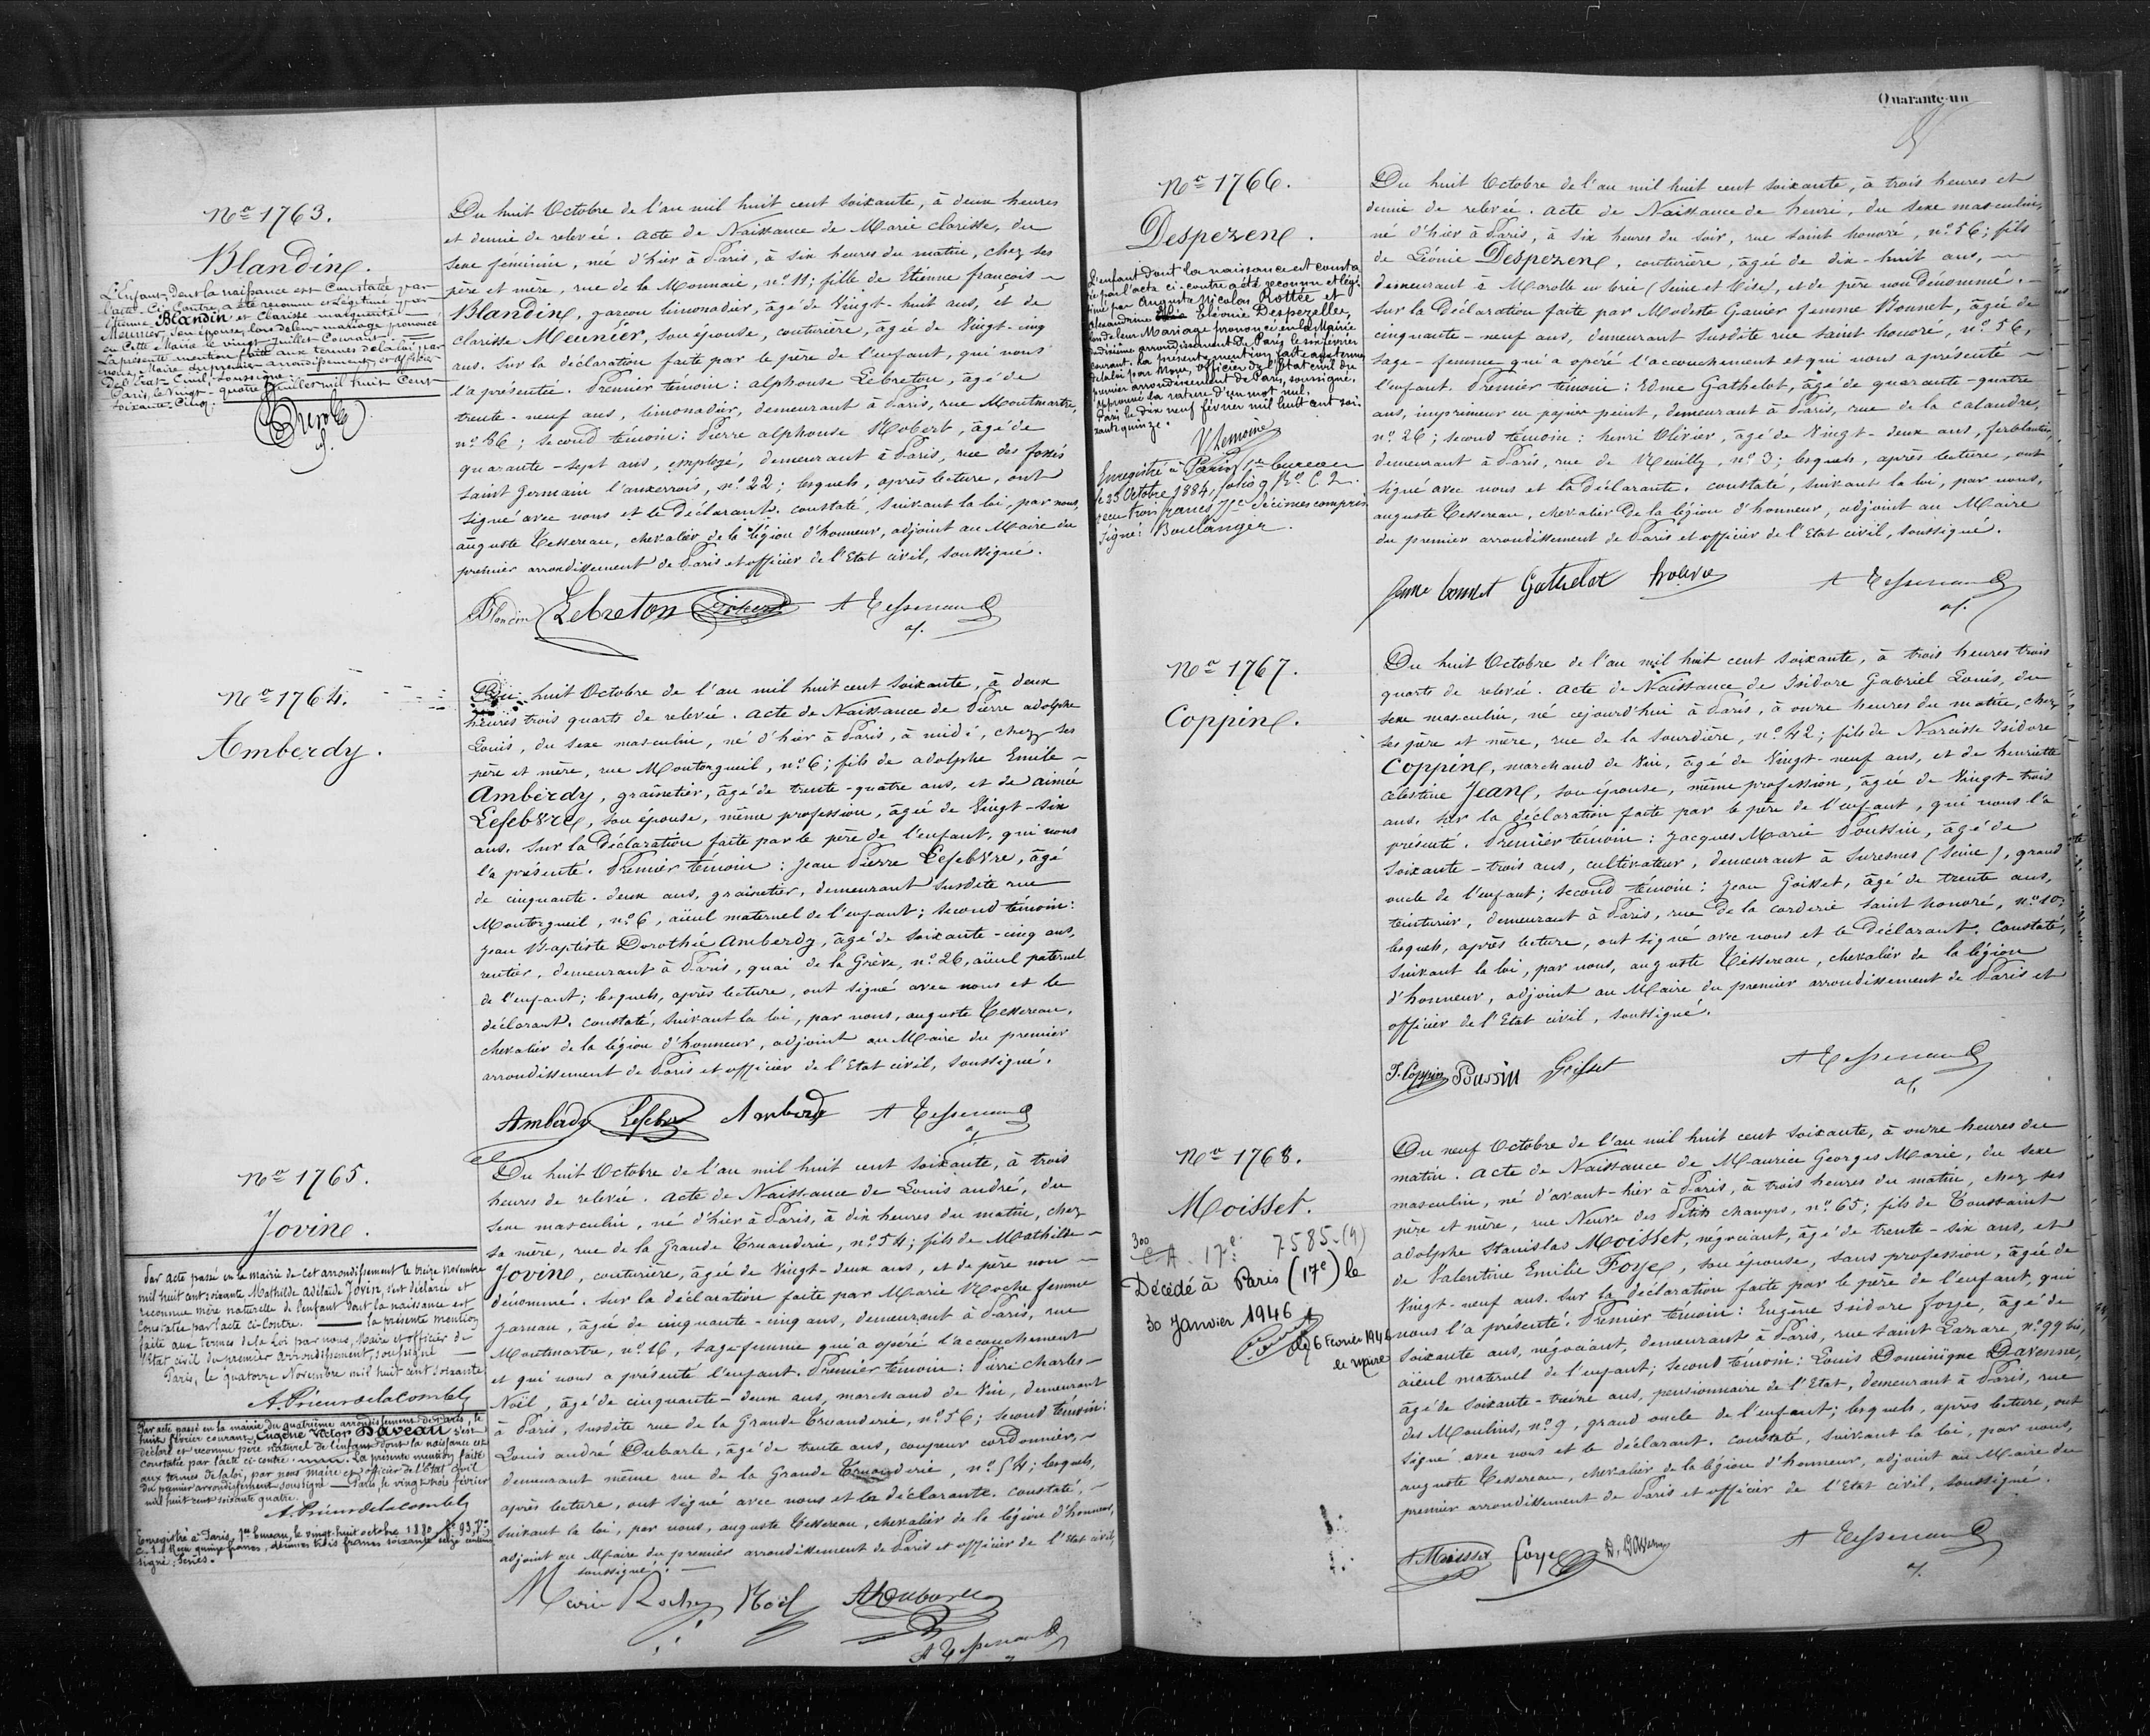 Nº 1763.
Blandin.
L'Enfant, dont la naissance est Constatée par
l'acte Ci-Contre, a été reconnu et légitimé par
Etienne Blandin et Clarisse marguerite
Meunier, son épouse, lors de leur mariage prononcé
en Cette Mairie le vingt Juillet Courant
La présente mention faite aux termes de la loi, par
nous, Maire du premier arrondissement, et officier
de l'Etat-Civil, soussigné.
Paris, le Vingt-quatre Juillet mil huit Cent
soixante Cinq.
Du huit Octobre de l'an mil huit cent soixante, à deux heures
et demie de relevée. acte de Naissance de Marie clarisse, du
sexe féminin, née d'hier à Paris, à six heures du matin, chez ses
père et mère, rue de la Monnaie, nº 11; fille de Etienne françois
Blandin, garçon limonadier, âgé de Vingt-huit ans, et de
clarisse Meunier, son épouse, couturière, âgée de Vingt-cinq
ans. sur la déclaration faite par le père de l'enfant, qui nous
l'a présentée. Premier témoin: alphonse Lebreton, âgé de
trente-neuf ans, limonadier, demeurant à Paris, rue Montmartre,
nº 86; second témoin: Pierre alphonse Robert, âgé de
quarante-sept ans, employé, demeurant à Paris, rue des fossés
saint Germain l'auxerrois, nº 22; lesquels, après lecture, ont
signé avec nous et le Déclarant. constaté, suivant la loi, par nous,
auguste Tessereau, chevalier de la légion d'honneur, adjoint au Maire du
premier arrondissement de Paris et officier de l'Etat civil, soussigné.
Blandin Lebreton Robert A Tessereau
Nº 1764.
Amberdy.
Du huit Octobre de l'an mil huit cent soixante, à deux
heures trois quarts de relevée. acte de Naissance de Pierre adolphe
Louis, du sexe masculin, né d'hier à Paris, à midi, chez ses
père et mère, rue Montorgueil, nº 6; fils de adolphe Emile
Amberdy, grainetier, âgé de trente-quatre ans, et de aimée
Lefebvre, son épouse, même profession, âgée de Vingt-six
ans. sur la Déclaration faite par le père de l'enfant, qui nous
l'a présenté. Premier témoin: Jean Pierre Lefebvre, âgé
de cinquante-deux ans, grainetier, demeurant susdite rue
Montorgueil, nº 6, aïeul maternel de l'enfant; second témoin:
Jean Baptiste Dorothée Amberdy, âgé de soixante-cinq ans,
rentier, demeurant à Paris, quai de la Grève, nº 26, aïeul paternel
de l'enfant; lesquels, après lecture, ont signé avec nous et le
déclarant. constaté, suivant la loi, par nous, auguste Tessereau,
chevalier de la légion d'honneur, adjoint au Maire du premier
arrondissement de Paris et officier de l'Etat civil, soussigné.
Amberdy Lefebvre Amberdy A Tessereau
Nº 1765.
Jovin.
Par acte passé en la mairie de cet arrondissement le treize Novembre
mil huit cent soixante, Mathilde Adélaïde Jovin, s'est déclarée et
reconnue mère naturelle de l'enfant dont la naissance est
Constatée par l'acte ci-Contre. La présente mention
faite aux termes de la Loi par nous, Maire et officier de
l'Etat civil du premier arrondissement, soussigné
Paris, le quatorze Novembre mil huit cent soixante
A. Prieur de la Comble
Par acte passé en la mairie du quatrième arrondissement de Paris, le
huit février courant, Eugène Victor Daveau s'est
déclaré et reconnu père naturel de l'enfant dont la naissance est
constatée par l'acte ci-contre. La présente mention faite
aux termes de la loi, par nous maire et officier de l'Etat Civil
du premier arrondissement soussigné. Paris le vingt trois février
mil huit cent soixante quatre.
A. Prieur de la Comble
Enregistré à Paris, 1er bureau, le vingt-huit octobre 1880, fº 93, Vº,
C. 1. Reçu quinze francs, décimes trois francs soixante seize centimes
signé:
Du huit Octobre de l'an mil huit cent soixante, à trois
heures de relevée. acte de Naissance de Louis andré, du
sexe masculin, né d'hier à Paris, à dix heures du matin, chez
sa mère, rue de la Grande Truanderie, nº 54; fils de Mathilde
Jovin, couturière, âgée de Vingt-deux ans, et de père non
dénommé. sur la déclaration faite par Marie Roche femme
Jarnau, âgée de cinquante-cinq ans, demeurant à Paris, rue
Montmartre, nº 16, sage femme qui a opéré l'accouchement
et qui nous a présenté l'enfant. Premier témoin: Pierre Charles
Noël, âgé de cinquante-deux ans, marchand de Vin, demeurant
à Paris, susdite rue de la Grande Truanderie, nº 56; second témoin:
Louis andré Dubarle, âgé de trente ans, coupeur cordonnier,
demeurant même rue de la Grande Truanderie, nº 54; lesquels,
après lecture, ont signé avec nous et la déclarante. constaté,
suivant la loi, par nous, auguste Tessereau, chevalier de la légion d'honneur,
adjoint au Maire du premier arrondissement de Paris et officier de l'Etat civil,
soussigné.
Marie Roche Noël Dubarle
A Tessereau
Quarante-un
Nº 1766.
Despezen.
L'enfant dont la naissance est consta
tée par l'acte ci-contre a été reconnu et légi
timé par Auguste Nicolas Rottée et
Alexandrine Eléonie Despezelle,
lors de leur Mariage prononcé en la Mairie
du dixième arrondissement de Paris le six février
courant. la présente mention faite aux termes
de la loi par Nous, Officier de l'Etat civil du
premier arrondissement de Paris, soussigné.
approuvé la rature d'un mot nul.
Paris le dix neuf février mil huit cent soi-
xante quinze.
V Lemoine
Enregistré à Paris 1er bureau
le 23 Octobre 1884, folio 9 Rº C 2.
reçu trois francs 77c décimes compris.
Signé: Boulanger.
Du huit Octobre de l'an mil huit cent soixante, à trois heures et
demie de relevée. acte de Naissance de henri, du sexe masculin,
né d'hier à Paris, à six heures du soir, rue saint honoré, nº 56; fils
de Léonie Despezen, couturière, âgée de dix-huit ans,
demeurant à Marolle en brie (seine et Oise), et de père non dénommé.
sur la Déclaration faite par Modeste Ganier femme Bonnet, âgée de
cinquante-neuf ans, demeurant susdite rue saint honoré, nº 56,
sage-femme qui a opéré l'accouchement et qui nous a présenté
l'enfant. Premier témoin: Edme Gathelot, âgé de quarante-quatre
ans, imprimeur en papier peint, demeurant à Paris, rue de la calandre,
nº 26; second témoin: henri Olivier, âgé de Vingt-deux ans, ferblantier,
demeurant à Paris, rue de Reuilly, nº 3; lesquels, après lecture, ont
signé avec nous et la déclarante. constaté, suivant la loi, par nous,
auguste Tessereau, chevalier de la légion d'honneur, adjoint au Maire
du premier arrondissement de Paris et officier de l'Etat civil, soussigné.
femme bonnet Gathelot A Tessereau
Nº 1767.
Coppin.
Du huit Octobre de l'an mil huit cent soixante, à trois heures trois
quarts de relevée. acte de Naissance de Isidore Gabriel Louis, du
sexe masculin, né cejourd'hui à Paris, à onze heures du matin, chez
ses père et mère, rue de la sourdière, nº 42; fils de Narcisse Isidore
Coppin, marchand de Vin, âgé de Vingt-neuf ans, et de henriette
celestine Jean, son épouse, même profession, âgée de Vingt-trois
ans. sur la déclaration faite par le père de l'enfant, qui nous l'a
présenté. Premier témoin: Jacques Marie Poussin, âgé de
soixante-trois ans, cultivateur, demeurant à Suresnes (seine), grand
oncle de l'enfant; second témoin: Jean Goisset, âgé de trente ans,
teinturier, demeurant à Paris, rue de la corderie saint honoré, nº 10;
lesquels, après lecture, ont signé avec nous et le Déclarant. Constaté,
suivant la loi, par nous, auguste Tessereau, chevalier de la légion
d'honneur, adjoint au Maire du premier arrondissement de Paris et
officier de l'Etat civil, soussigné.
Coppin Poussin A Tessereau
Nº 1768.
Moisset.
300
17e 7585.(9)
Décédé à Paris (17e) le
30 Janvier 1946
6 Février 1946
le maire
Du neuf Octobre de l'an mil huit cent soixante, à onze heures du
matin. acte de Naissance de Maurice Georges Marie, du sexe
masculin, né d'avant-hier à Paris, à trois heures du matin, chez ses
père et mère, rue Neuve des Petits champs, nº 65; fils de Toussaint
adolphe stanislas Moisset, négociant, âgé de trente-six ans, et
de Valentine Emilie Foye, son épouse, sans profession, âgée de
Vingt-neuf ans. sur la Déclaration faite par le père de l'enfant, qui
nous l'a présenté. Premier témoin: Eugène Isidore foye, âgé de
soixante ans, négociant, demeurant à Paris, rue saint Lazare, nº 99 bis,
aïeul maternel de l'enfant; second témoin: Louis Dominique Davenne,
âgé de soixante-treize ans, pensionnaire de l'Etat, demeurant à Paris, rue
des Moulins, nº 9, grand oncle de l'enfant; lesquels, après lecture, ont
signé avec nous et le déclarant. constaté, suivant la loi, par nous,
auguste Tessereau, chevalier de la légion d'honneur, adjoint au Maire du
premier arrondissement de Paris et officier de l'Etat civil, soussigné.
A Moisset foye D. Davenne A Tessereau